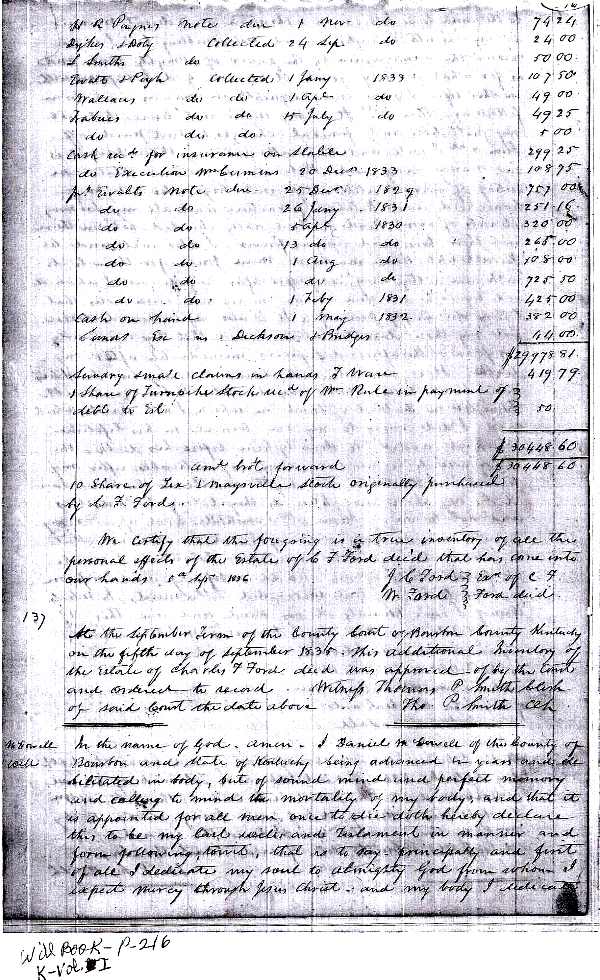 H R Paynes Note due 1 Nov do 74 24
Dykes & Doty Collected 24 Sep do 24 00
S Smiths do 50 00
Ewalt & Pugh Collected 1 Jany 1833 107 50
Wallaces do do 1 apl do 49 00
do do 15 July do 49 25
do do do 5 00
Cash recd for insurance on Stable 299 25
do Execution Wm Cummins 20 Decr 1833 108 75
Ewalts Note due 25 Decr 1829 757 00
do do 26 Jany 1831 251 16
do do 5 apl 1830 320 00
do do 13 do do 265 00
do do 1 Aug do 108 00
do do do do 725 50
do do 1 Feby 1831 425 00
Cash on hand 1 May 1832 382 00
Exc vs Dickson & Bridges 44 00
$29978 81
Sundry small claims in hands T Ware 419 79
1 Share of Turnpike Stock recd of Wm Rule in payment of
debt to Est 50
$30448 60
amt brot forward $30448 60
10 Share of Lex & Maysville Stock originally purchased
by C F Ford
We Certify that the foregoing is a true inventory of all the
personal effects of the Estate of C F Ford decd that has come into
our hands Sept 1836 J C Ford Exrs of C F
W Ford Ford decd
137
At the September Term of the County Court of Bourbon County Kentucky
on the fifth day of September 1836. This additional Inventory of
the Estate of Charles F Ford decd was approved of by the Court
and ordered to record. Witness Thomas P Smith Clerk
of said Court the date above Tho P. Smith Clk
McDowell
Will
In the name of God. amen. I Daniel McDowell of the County of
Bourbon and State of Kentucky being advanced in years and de
bilitated in body, but of sound mind and perfect memory
and calling to mind the mortality of my body, and that it
is appointed for all men, once to die doth hereby declare
this to be my last will and Testament in manner and
form following, towit, that is to say. principally and first
of all I dedicate my soul to almighty God from whom I
expect mercy through Jesus Christ. and my body I dedicate
Will Book - P-216
K-Vol. I